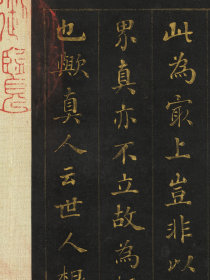 此為最上豈非以
界真亦不立故為
也歟真人云世人